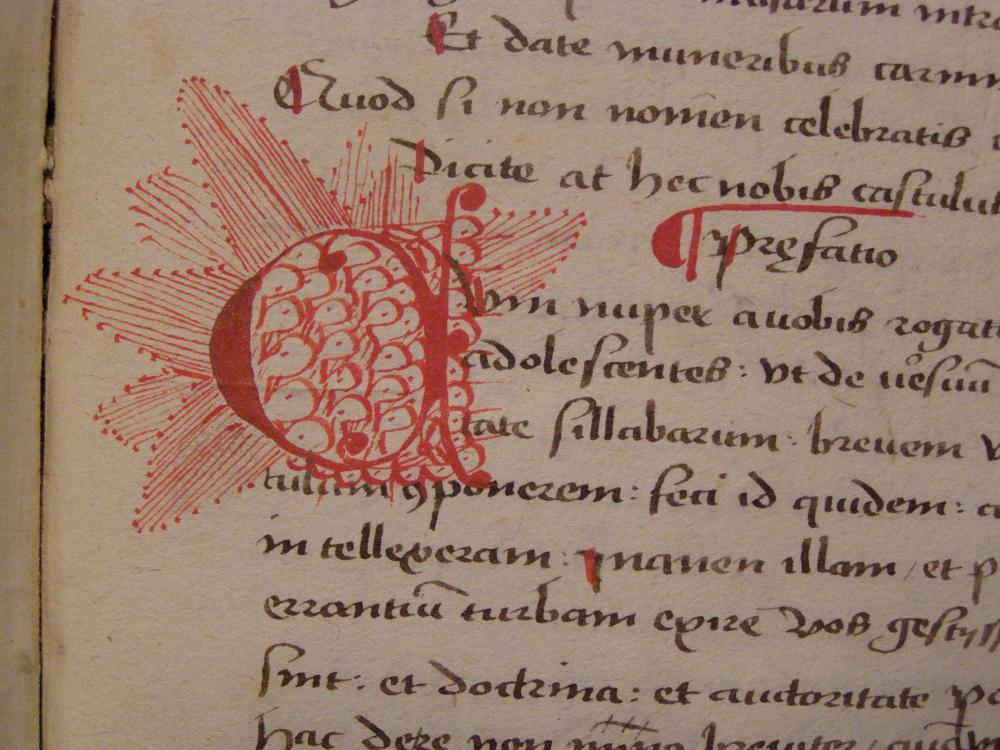 Et date muneribus carmin
Quod si non nomen celebratis
Dicite at hec nobis castulut
¶ Pręfatio
Cum nuper a uobis rogat
adolescentes: vt de uersuū
tate sillabarum: breuem
tulam ꝯponerem: feci id quidem:
intellexeram: inanem illam, et p
errantiū turbam exire Vos gestiss
sint: et doctrina: et auctoritate
hac de re non breuiter